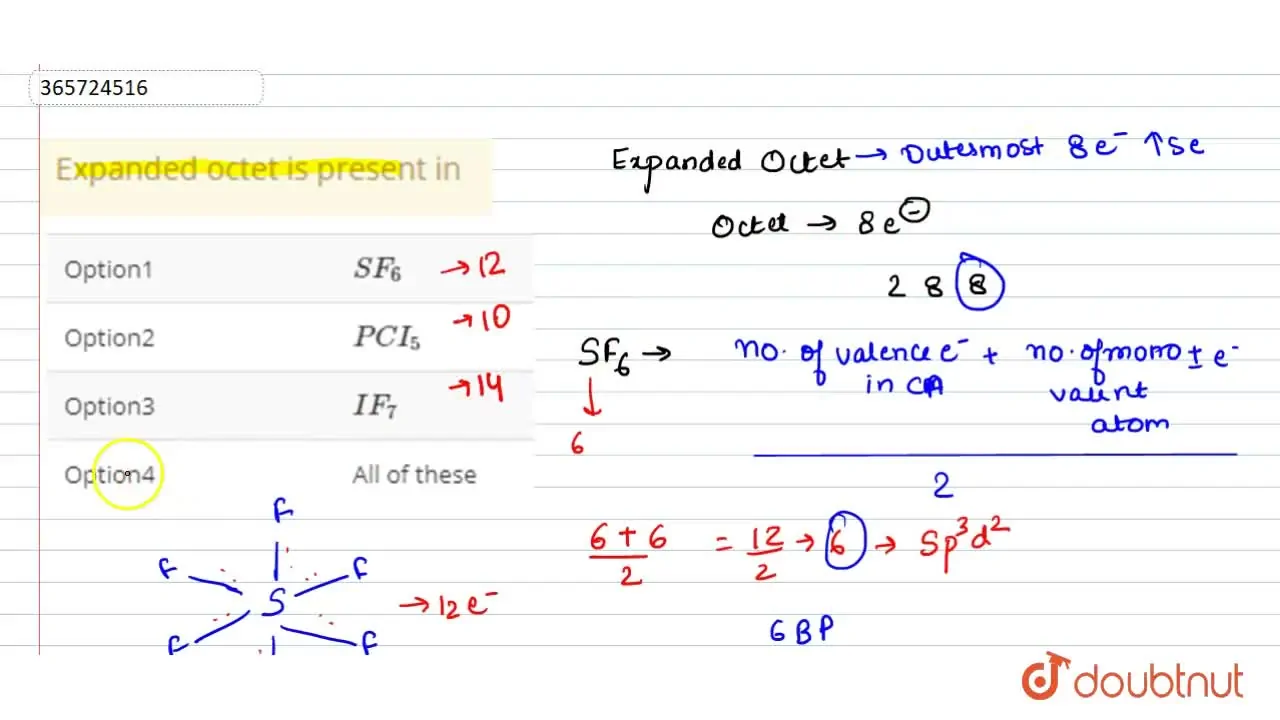 365724516
Expanded octet is present in
Option1 SF6 → 12
Option2 PCI5 → 10
Option3 IF7 → 14
Option4 All of these
Expanded Octet → Outesmost 8e⁻ ↑se
Octet → 8e⁻
2 8 8
SF6 → no. of valence e⁻ + no. of mono ± e⁻
in CA valent
atom
6
2
6 + 6 = 12 → 6 → Sp³d²
2 2
6 BP
F
F F
S → 12e⁻
F F
doubtnut